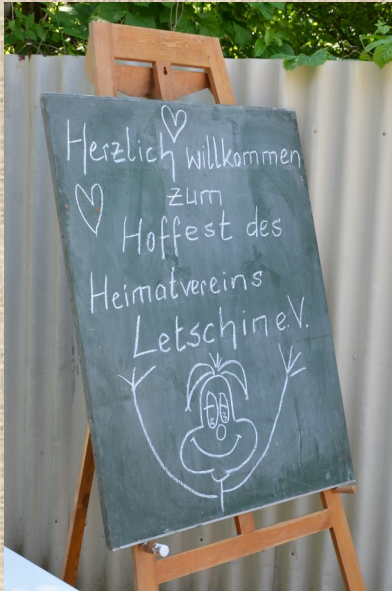 Herzlich willkommen
zum
Hoffest des
Heimatvereins
Letschin e.V.